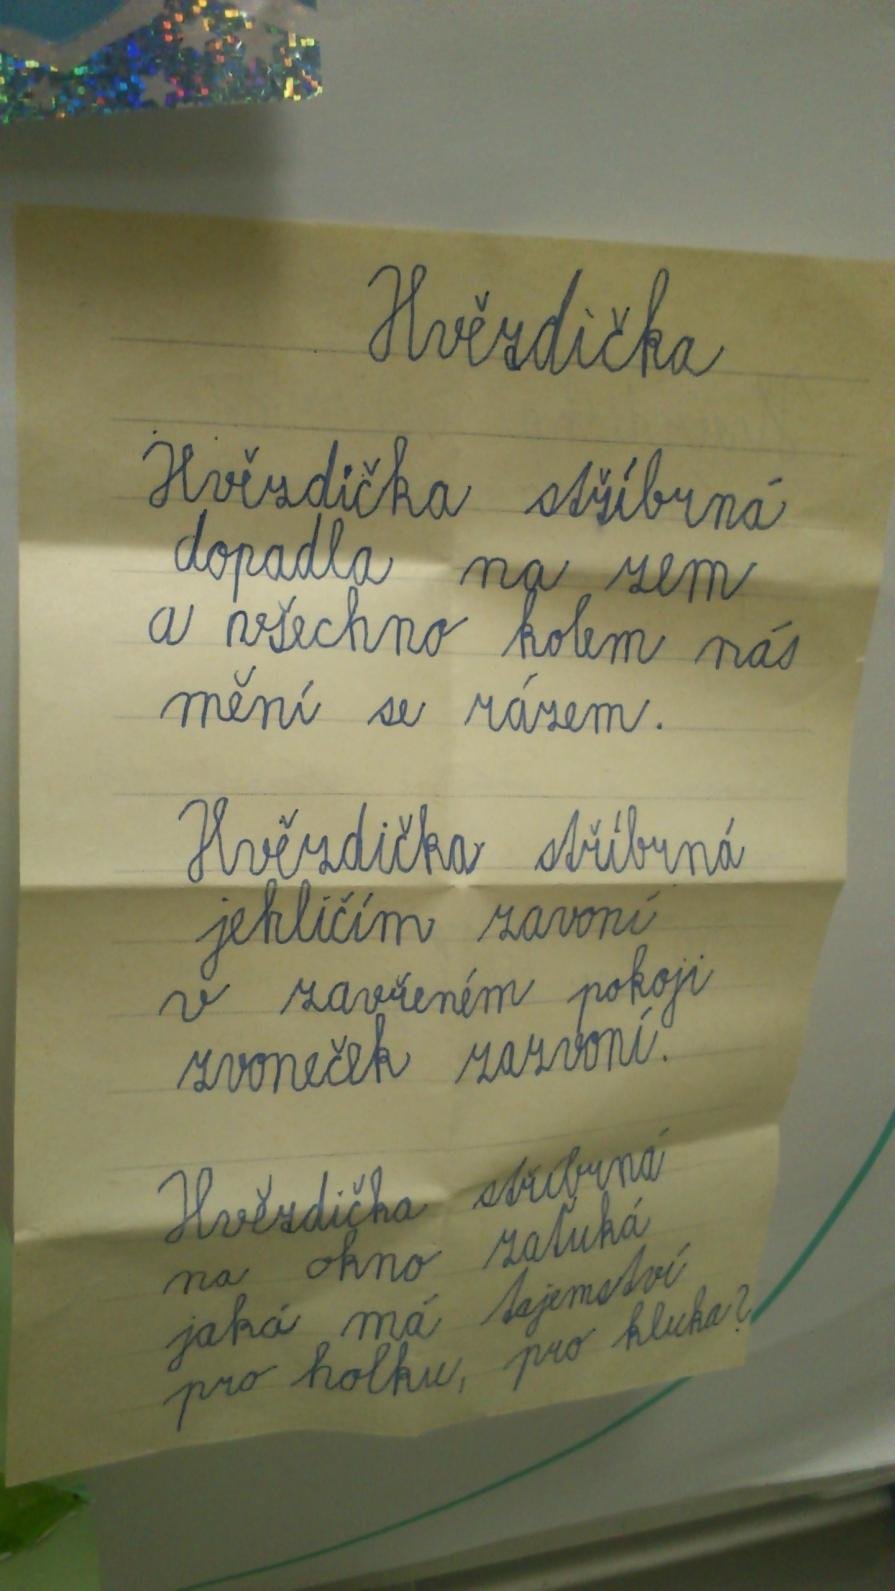 Hvězdička
Hvězdička stříbrná
dopadla na zem
a všechno kolem nás
mění se rázem.
Hvězdička stříbrná
jehličím zavoní
v zavřeném pokoji
zvoneček zazvoní.
Hvězdička stříbrná
na okno zaťuká
jaká má tajemství
pro holku, pro kluka?